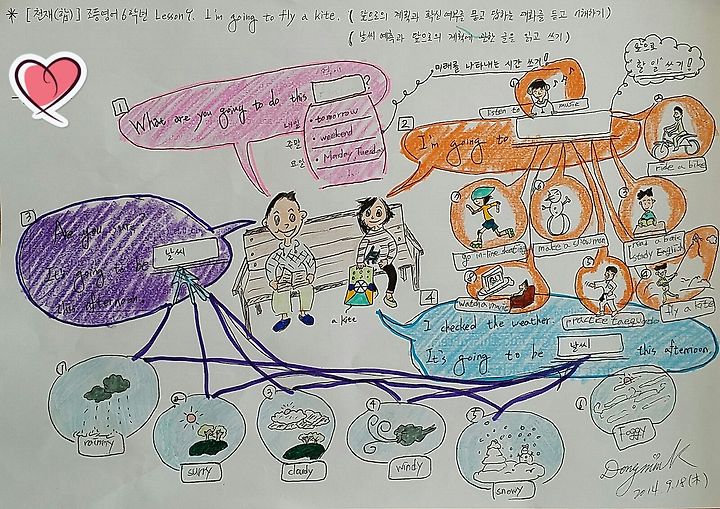 * [천재(함)] 초등영어 6학년 Lesson 9. I'm going to fly a kite. ( 앞으로의 계획과 확실 여부를 묻고 답하는 대화를 듣고 이해하기 )
( 날씨 예측과 앞으로의 계획에 관한 글을 읽고 쓰기 )
미래를 나타내는 시간 쓰기!
앞으로
'할 일' 쓰기!
1
What are you going to do this ?
내일 • tomorrow
주말 • weekend
요일 • Monday, Tuesday
2
I'm going to
listen to music
ride a bike
go in-line skating
make a snowman
read a book
study English
watch a movie
practice taekwondo
fly a kite
3
Are you sure?
It's going to be 날씨
this afternoon.
a kite
4
I checked the weather.
It's going to be 날씨 this afternoon.
① rainny
② sunny
③ cloudy
④ windy
⑤ snowy
⑥ foggy
Dongmin K
2014. 9. 18 (木)